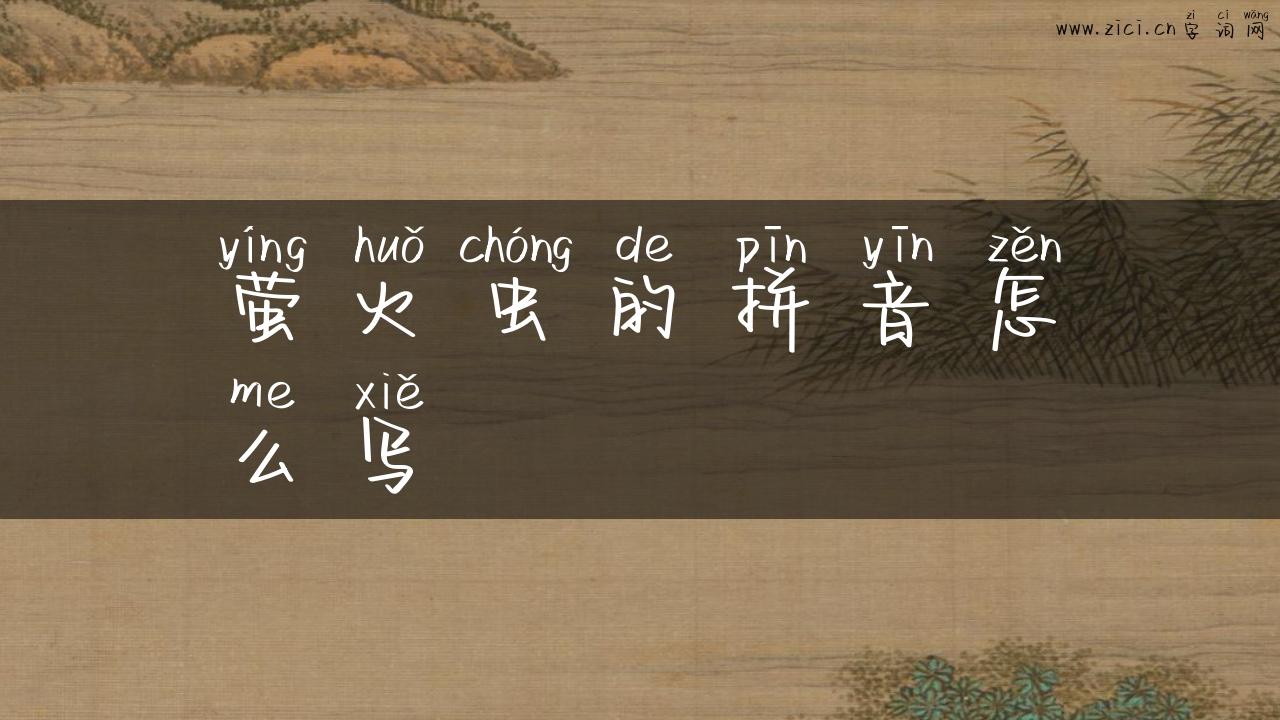 zì cí wǎng
www.zici.cn 字 词 网
yíng huǒ chóng de pīn yīn zěn
萤 火 虫 的 拼 音 怎
me xiě
么 写